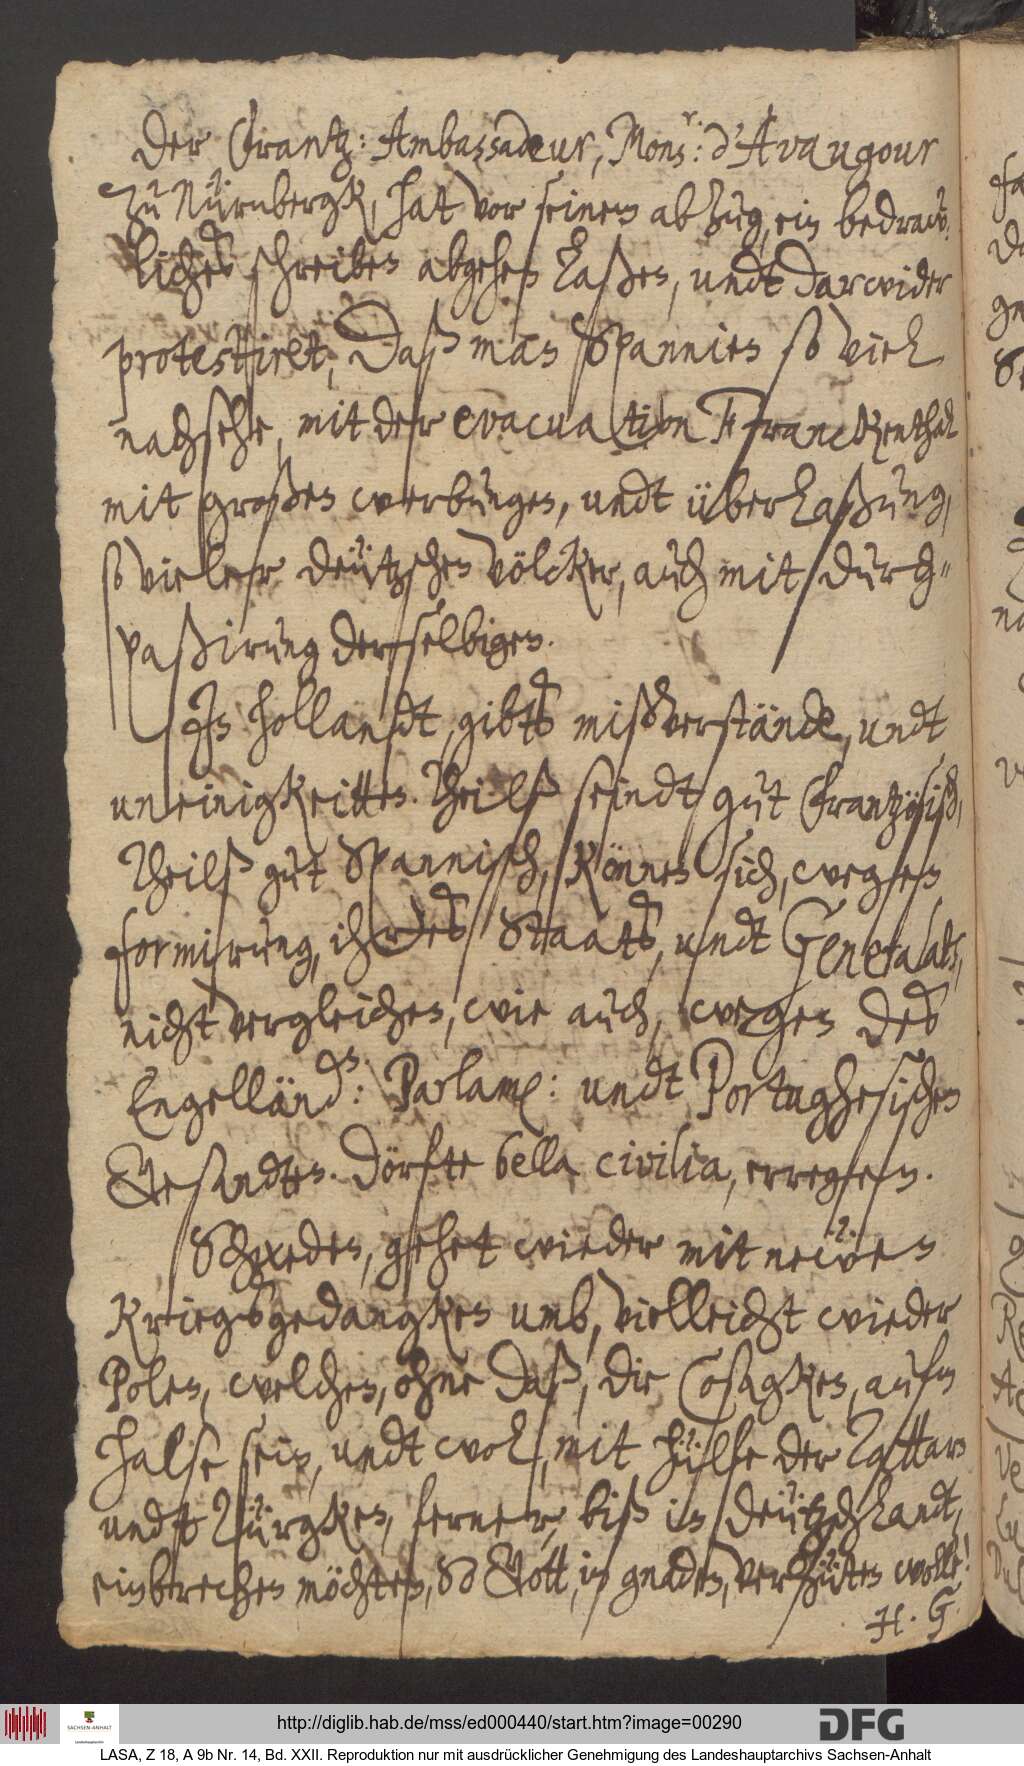 Der Frantz: Ambassadeur, Mons.r: d'Avaugour
zu Nürnbergk, hat vor seinem abzug, ein bedraw-
liches schreiben abgehen laßen, undt darwider
protestiret, Daß man Spannien so viel
nachsehe, mit der evacuation Franckenthal
mit großen werbungen, undt überlaßung,
so vieler deützschen völcker, auch mit durch=
paßirung derselbigen.
In Hollandt, gibts mißverstände, undt
uneinigkeitten. Theilß seindt gut Frantzösisch,
Theilß gut Spannisch, Können sich, wegen
formirung, ihres Staats, undt Generalats,
nicht vergleichen, wie auch, wegen des
Engelländ:s: Parlam: undt Portughesischen
Gesandten. Dörfte bella civilia, erregen.
Schweden, gehet wieder mit newen
Kriegsgedangken umb, vielleicht wieder
Polen, welchen, ohne daß, die Cosagken, aufm
halse sein, undt wol, mit hülfe der Tattarn
undt Türgken, ferner, biß in Deützschlandt,
einbrechen möchten, So Gott, in gnaden, verhüten wolle!
H. G.
http://diglib.hab.de/mss/ed000440/start.htm?image=00290
SACHSEN-ANHALT
DFG
LASA, Z 18, A 9b Nr. 14, Bd. XXII. Reproduktion nur mit ausdrücklicher Genehmigung des Landeshauptarchivs Sachsen-Anhalt